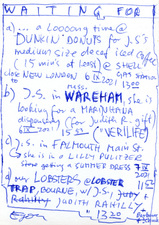 WAITING FOR
a) ... a looong time @
DUNKIN' DONUTS for J.S's
medium size decaf iced coffee
(15 min's at least) @ SHELL
close NEW LONDON GAS STATION
6 IX 2021 1300
b) J.S. in WAREHAM, MASS. she is
looking for a MARIHUANA
dispensary (for Judith R. gift)
6 IX 2021 1552 ("VERILIFE")
c) J.S. in FALMOUTH MAIN St.
she is in a LILLY PULITZER
store getting a SUMMER DRESS 7 IX 2021
d) our LOBSTERS @ LOBSTER
TRAP, BOURNE, w/ J.S., JUDY +
JUDITH RAHILLY
1320